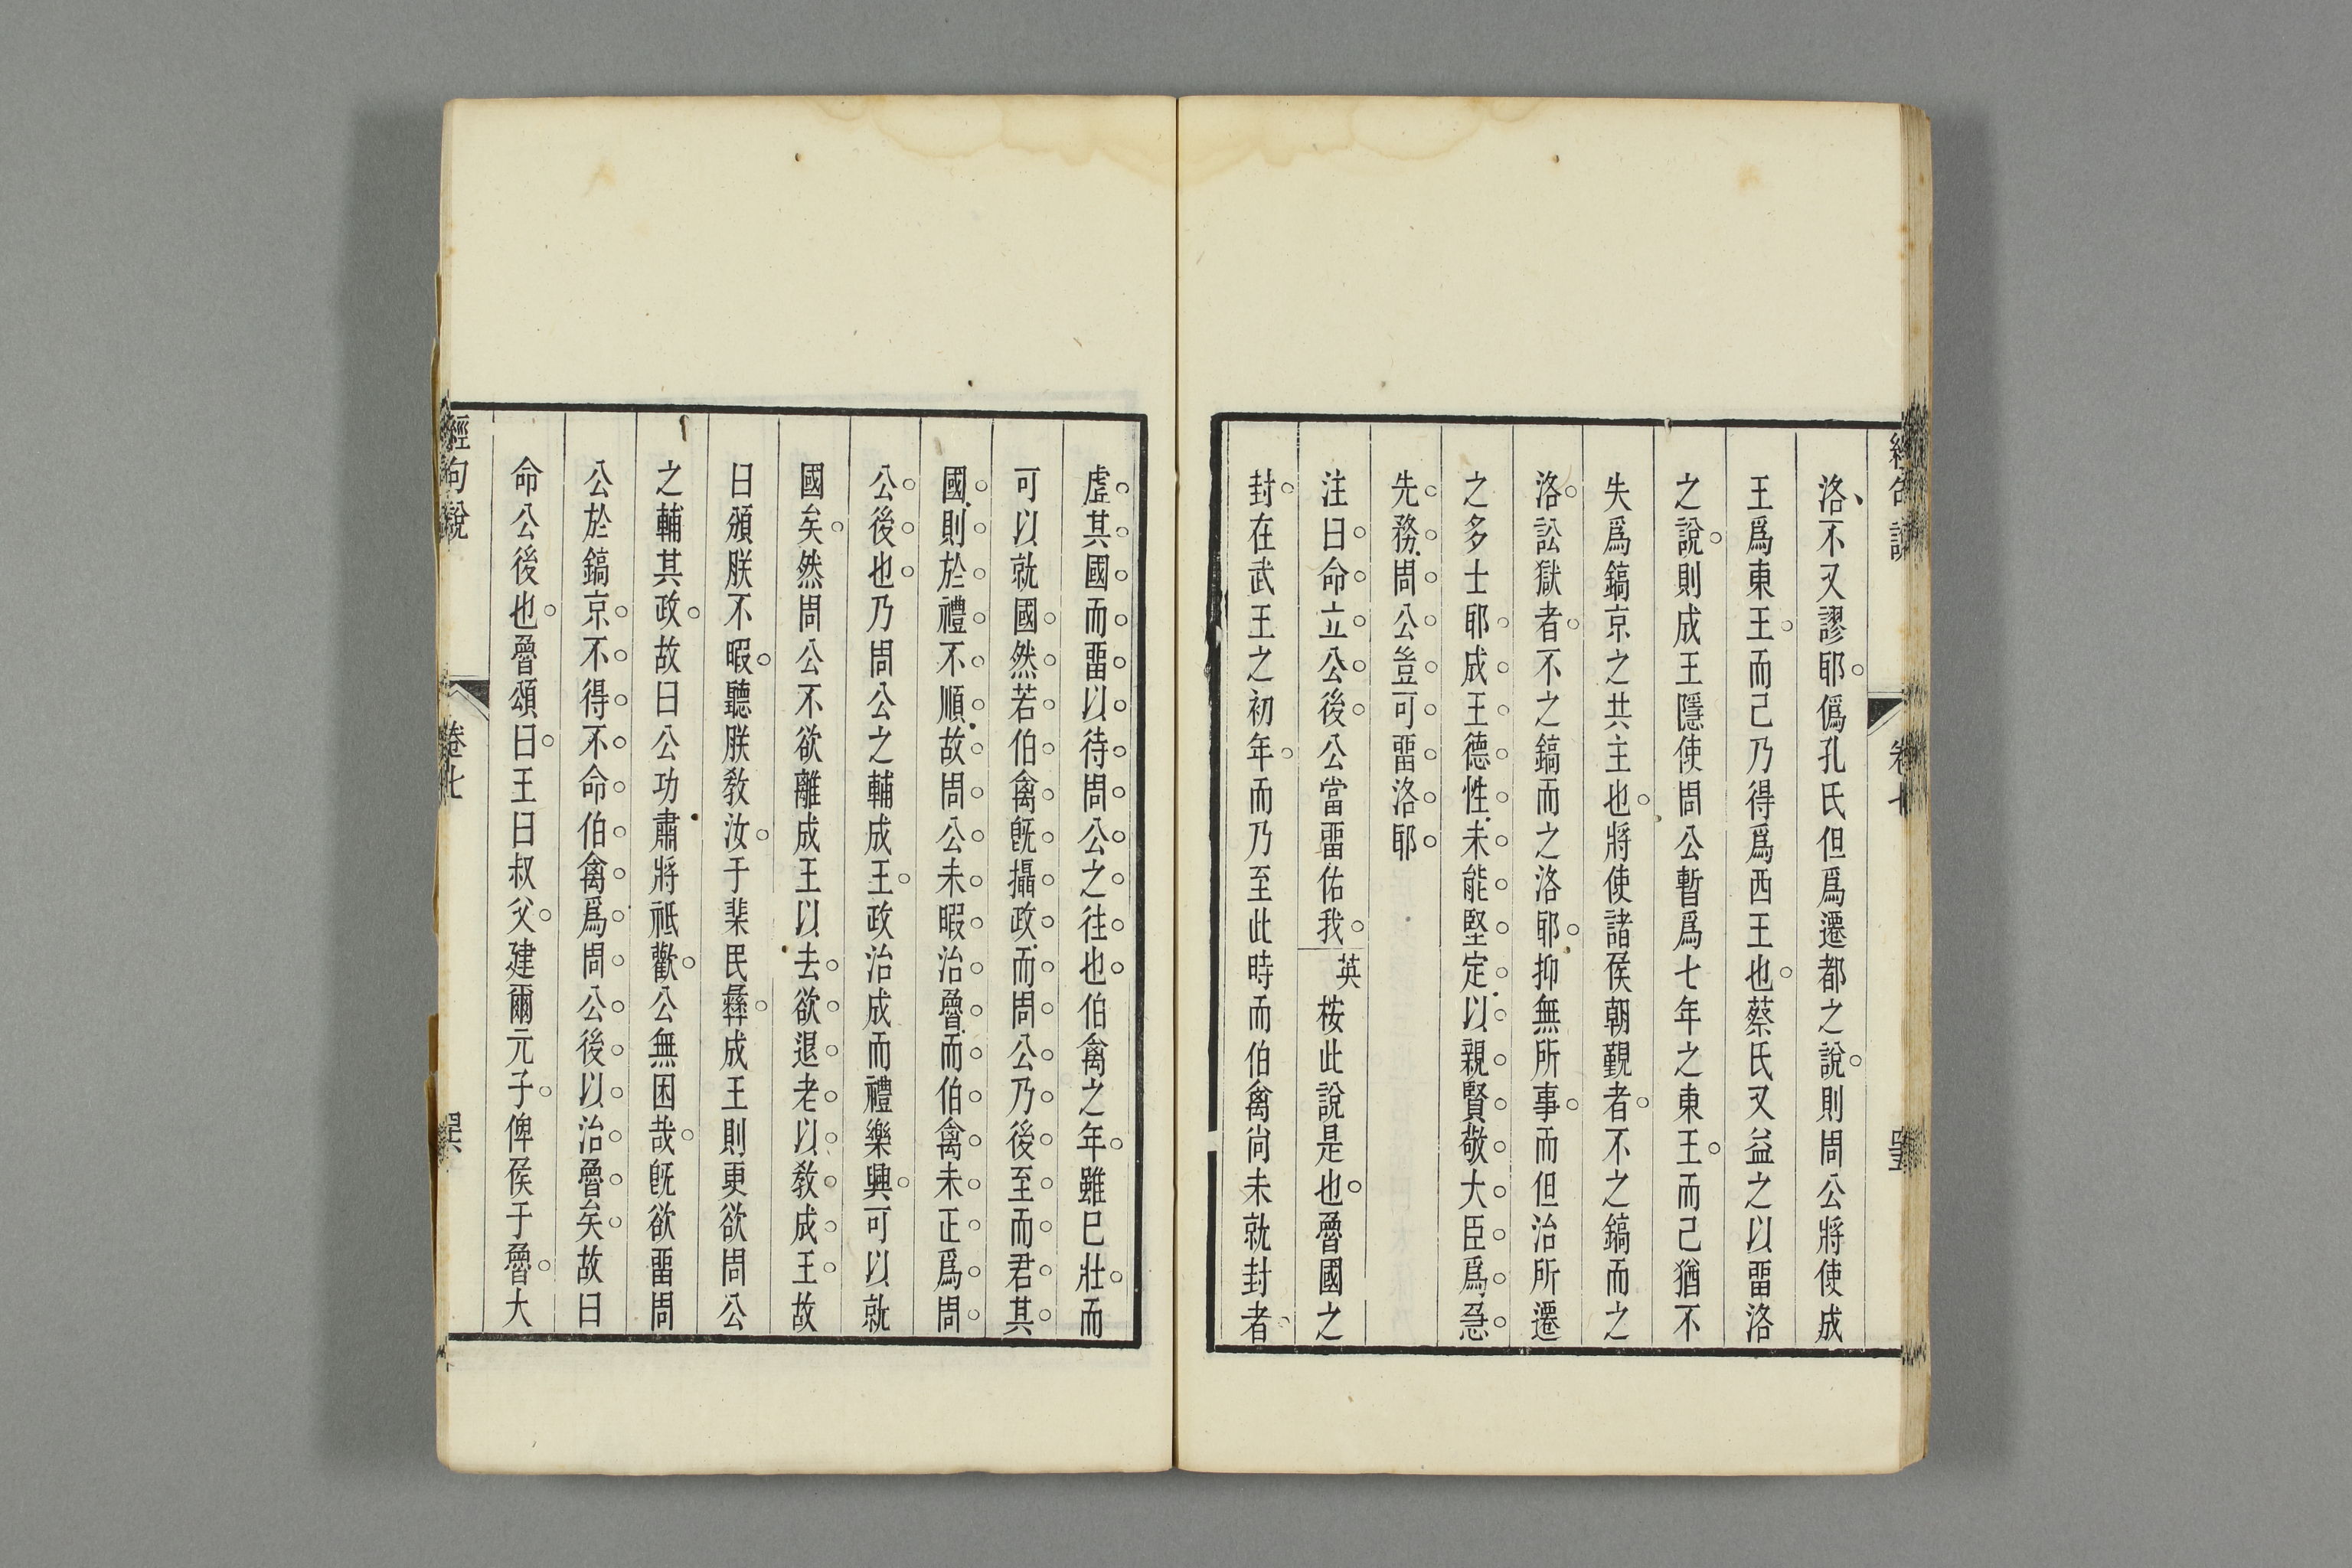 洛不又謬耶僞孔氏但爲遷都之說則周公將使成
王爲東王而己乃得爲西王也蔡氏又益之以畱洛
之說則成王隱使周公暫爲七年之東王而己猶不
失爲鎬京之共主也將使諸侯朝覲者不之鎬而之
洛訟獄者不之鎬而之洛耶抑無所事而但治所遷
之多士耶成王德性未能堅定以親賢敬大臣爲急
先務周公豈可畱洛耶
注曰命立公後公當畱佑我英桉此說是也魯國之
封在武王之初年而乃至此時而伯禽尚未就封者
虛其國而畱以待周公之往也伯禽之年雖巳壯而
可以就國然若伯禽旣攝政而周公乃後至而君其
國則於禮不順故周公未暇治魯而伯禽未正爲周
公後也乃周公之輔成王政治成而禮樂興可以就
國矣然周公不欲離成王以去欲退老以敎成王故
曰頒朕不暇聽朕敎汝于棐民彝成王則更欲周公
之輔其政故曰公功肅將祗歡公無困哉旣欲畱周
公於鎬京不得不命伯禽爲周公後以治魯矣故曰
命公後也魯頌曰王曰叔父建爾元子俾侯于魯大
經句說
卷七